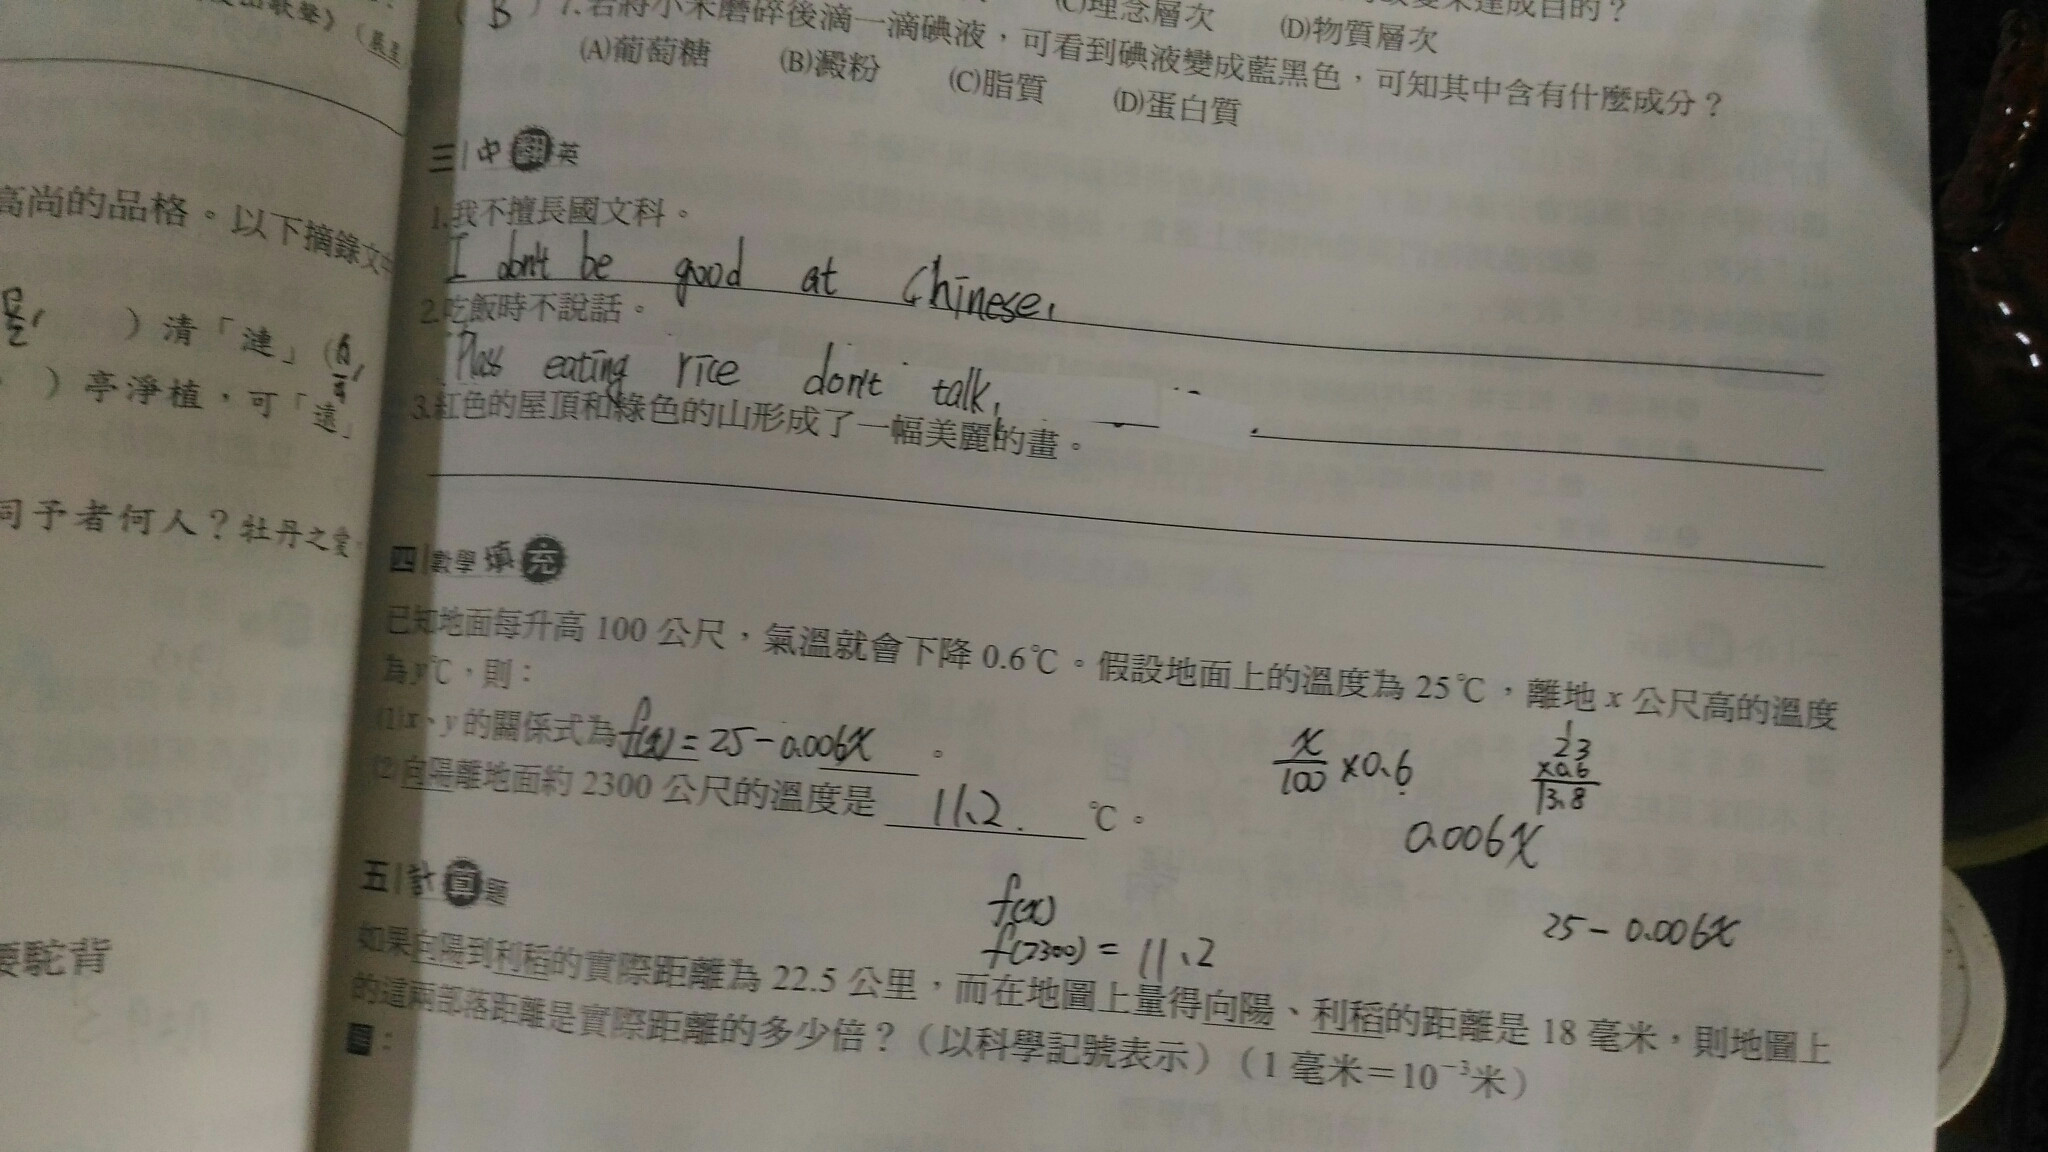 高尚的品格。以下摘錄文中
)清「漣」(
)亭淨植,可「遠」
同予者何人?牡丹之愛
腰駝背
(C)理念層次 (D)物質層次
( B )7.若將小米磨碎後滴一滴碘液,可看到碘液變成藍黑色,可知其中含有什麼成分?
(A)葡萄糖 (B)澱粉 (C)脂質 (D)蛋白質
三 中翻英
1.我不擅長國文科。
I don't be good at Chinese.
2.吃飯時不說話。
eating rice don't talk,
3.紅色的屋頂和綠色的山形成了一幅美麗的畫。
四 數學填充
已知地面每升高100公尺,氣溫就會下降0.6℃。假設地面上的溫度為25℃,離地x公尺高的溫度
為y℃,則:
(1)x、y的關係式為f(x)=25-0.006x。
(2)向陽離地面約2300公尺的溫度是 11.2 ℃。
x/100×0.6
1
23
×0.6
13.8
0.006x
五 計算題
f(x)
f(2300)=11.2
25-0.006x
如果向陽到利稻的實際距離為22.5公里,而在地圖上量得向陽、利稻的距離是18毫米,則地圖上
的這兩部落距離是實際距離的多少倍?(以科學記號表示)(1毫米=10⁻³米)